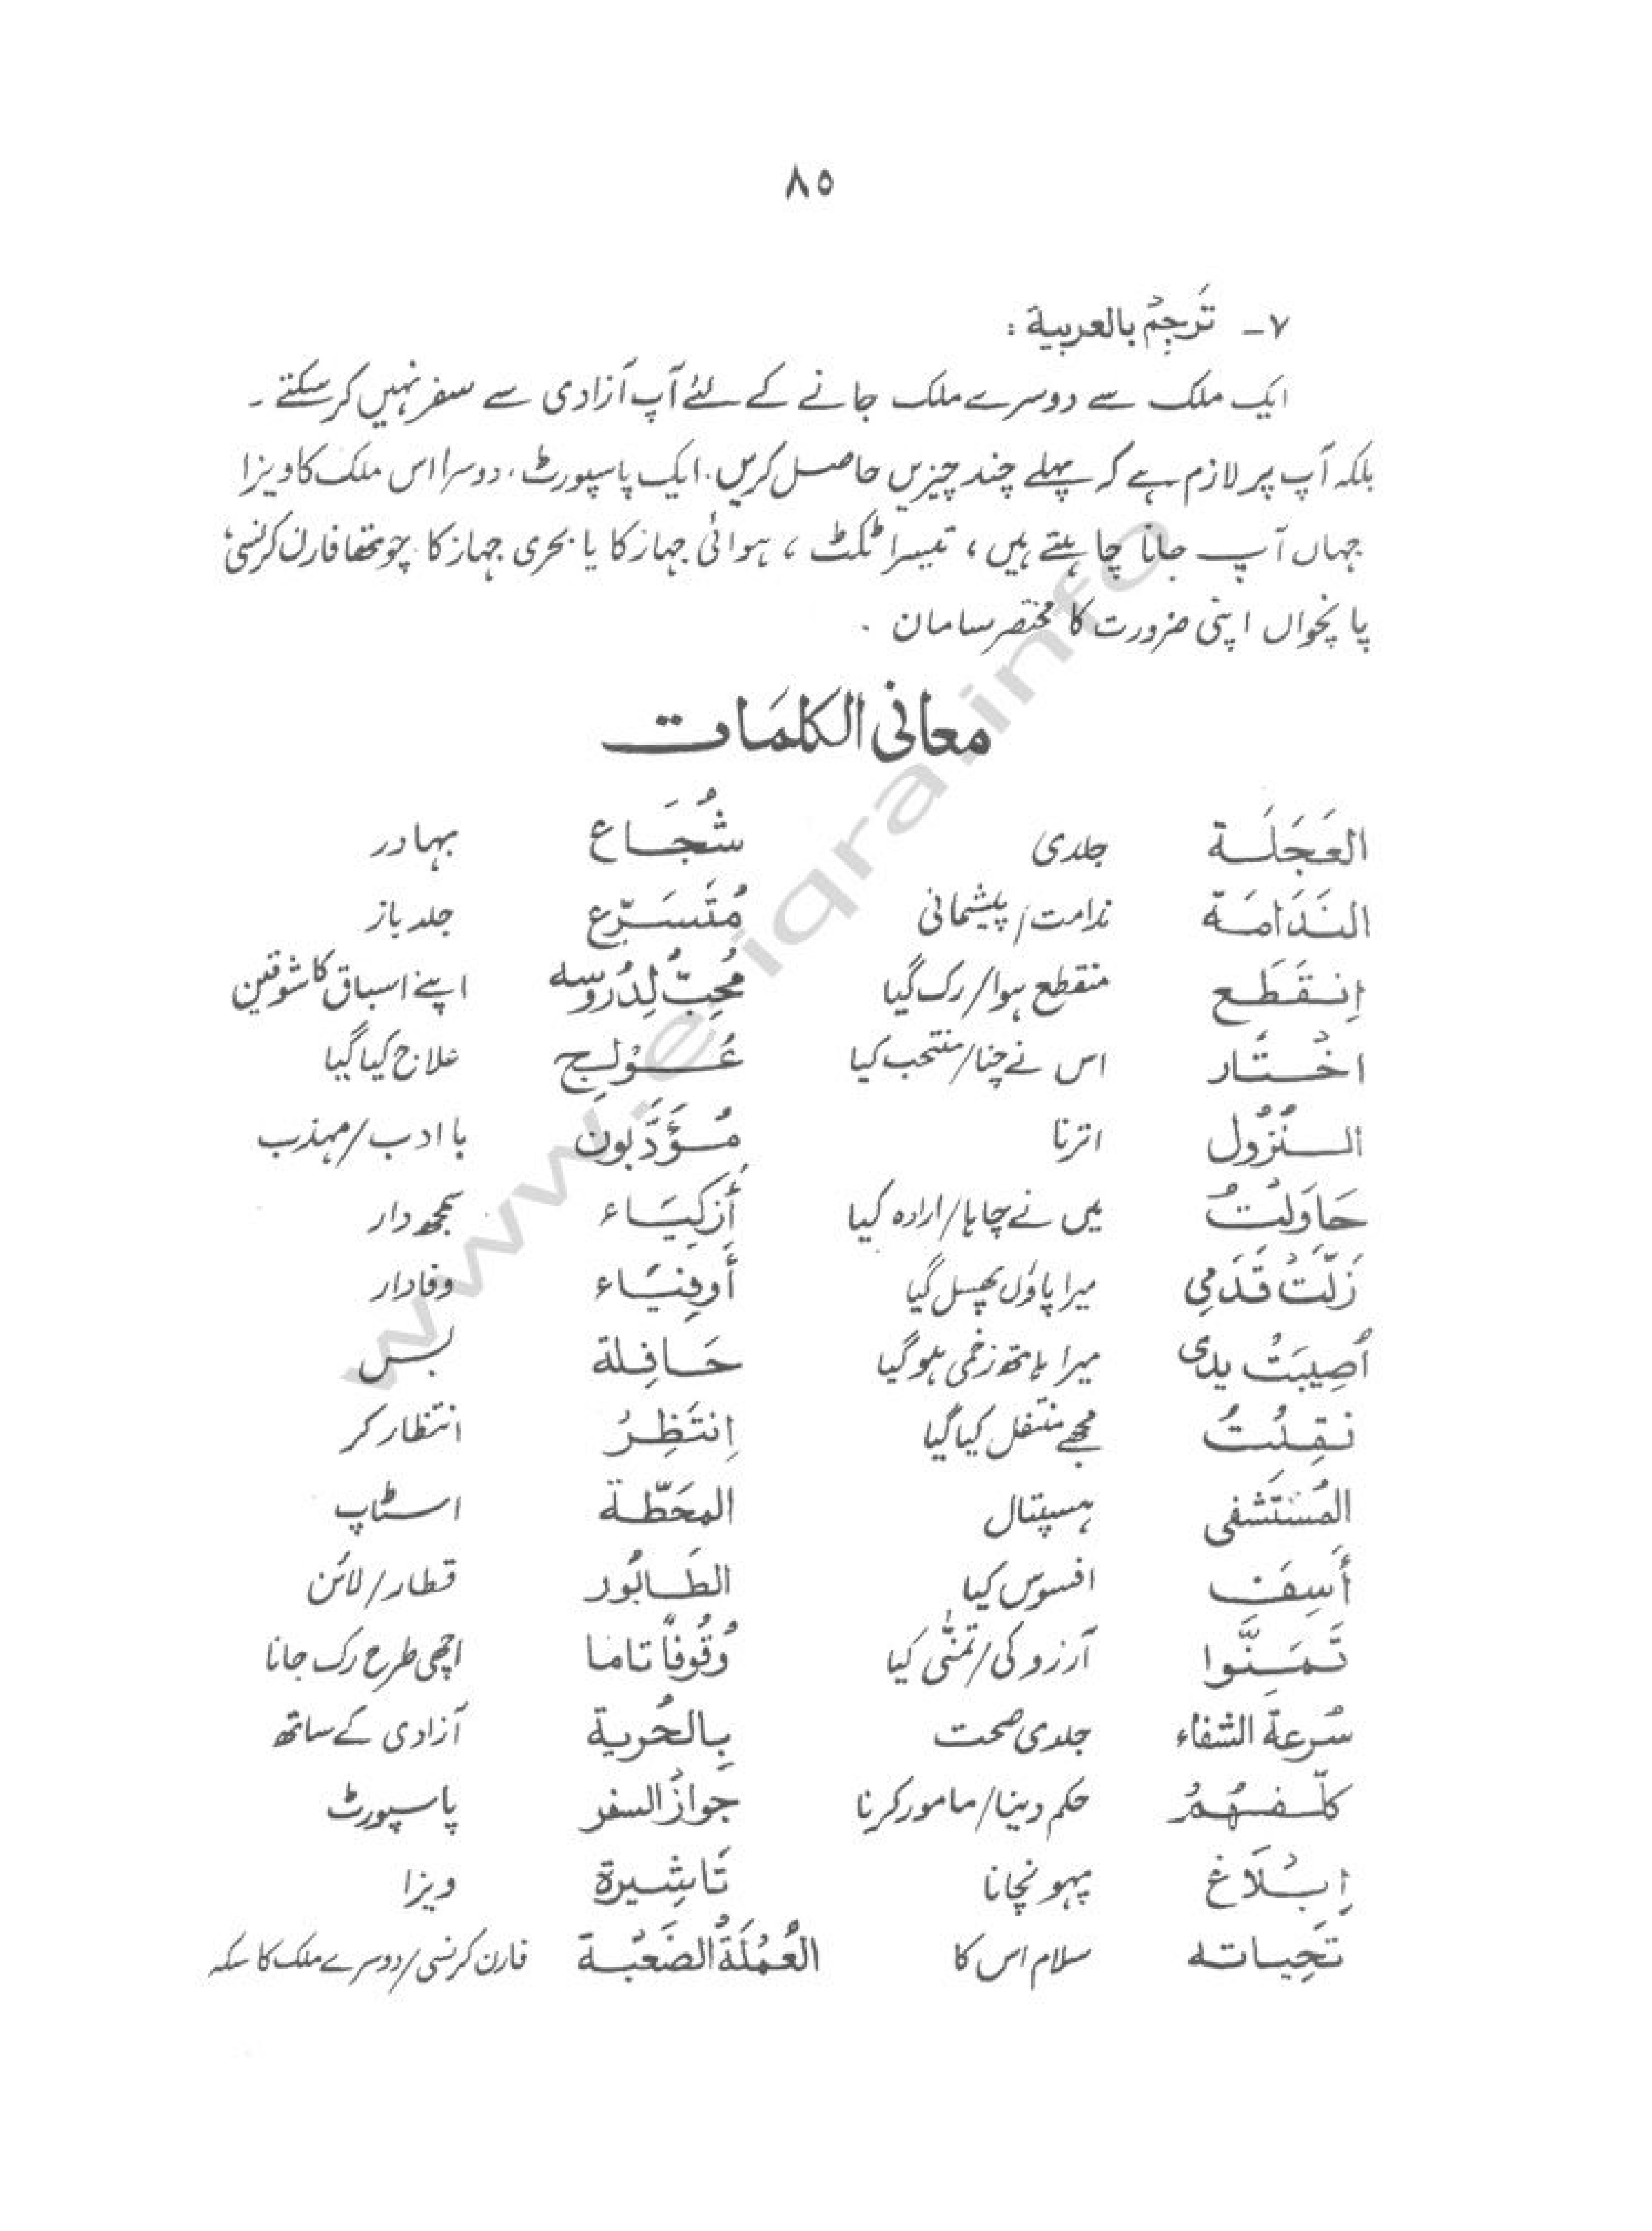 ٨٥
٧- تَرجِمْ بالعربية :
ایک ملک سے دوسرے ملک جانے کے لئے آپ آزادی سے سفر نہیں کرسکتے ۔
بلکہ آپ پر لازم ہے کہ پہلے چند چیزیں حاصل کریں . ایک پاسپورٹ ، دوسرا اس ملک کا ویزا
جہاں آپ جانا چاہتے ہیں ، تیسرا ٹکٹ ، ہوائی جہاز کا یا بحری جہاز کا چوتھا فارن کرنسی ،
پانچواں اپنی ضرورت کا مختصر سامان ۔
معانی الکلمَات
العَجَلَة جلدی شُجَاع بہادر
النَدَامَة ندامت/پشیمانی مُتَسَرّع جلد باز
اِنقَطَع منقطع ہوا/رک گیا مُحِبّ لِدُرُوسه اپنے اسباق کا شوقین
اخْتَار اس نے چنا/منتخب کیا عُوْلِج علاج کیا گیا
النُزُول اترنا مُؤَدَّبون با ادب/مہذب
حَاوَلْتُ میں نے چاہا/ارادہ کیا أَزكِيَاء سمجھ دار
زَلَّتْ قَدَمِي میرا پاؤں پھسل گیا أَوفِيَاء وفادار
اُصِيبَتْ يدى میرا ہاتھ زخمی ہو گیا حَافِلة بس
نقِلْتُ مجھے منتقل کیا گیا اِنتَظِرْ انتظار کر
المُسْتَشفى ہسپتال المحَطّة اسٹاپ
أَسِفَ افسوس کیا الطَابُور قطار/لائن
تَمَنَّوا آرزو کی/تمنّٰی کیا وُقُوفًا تاما اچھی طرح رک جانا
سُرعة الشفاء جلدی صحت بِالحُرية آزادی کے ساتھ
كلّفهُمْ حکم دینا/مامور کرنا جوازُ السفر پاسپورٹ
إِبْلَاغ پہونچانا تَاشِيرة ویزا
تَحِياته سلام اس کا العُمْلَةُ الصَعْبة فارن کرنسی/دوسرے ملک کا سکہ
www.e-iqra.info